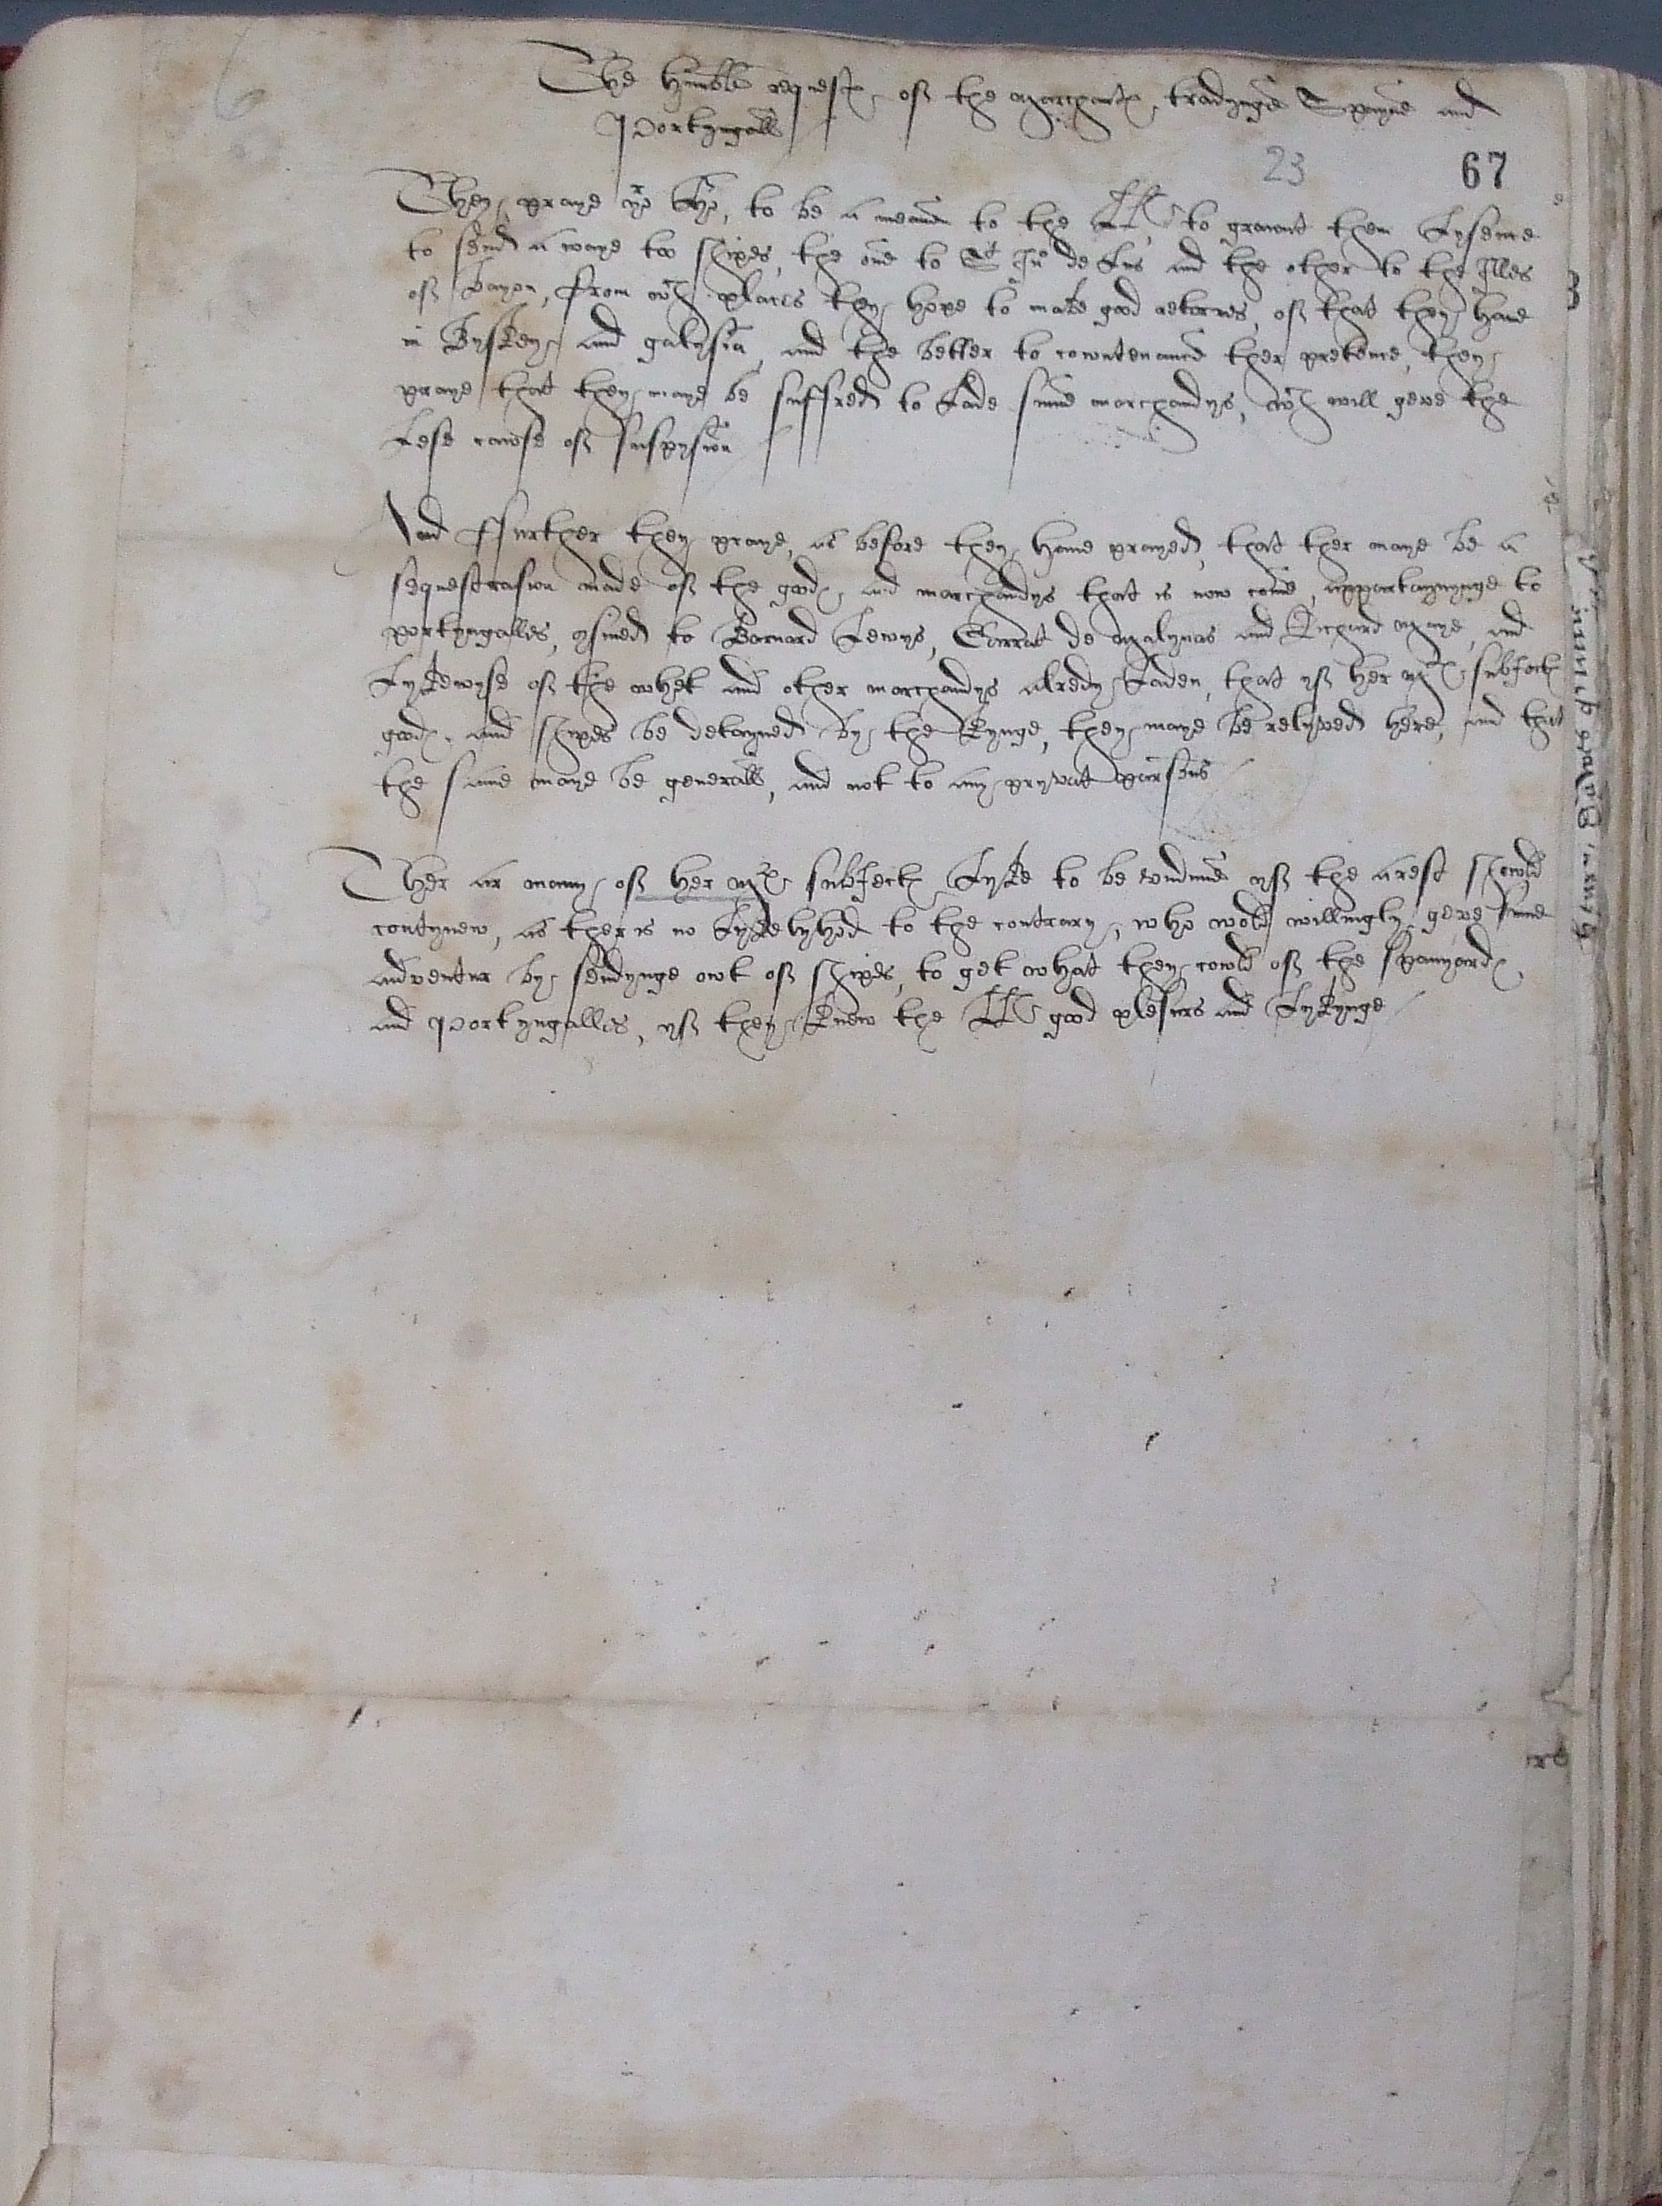 The humble request of the marchants tradynge Spayne and
Portyngall
23 67
They praye yor honor, to be a meane to the LLs to graunt them Lysence
to send a waye too shipes, the one to St Jno de Lus and the other to the Illes
of Bayon, from wch places they hope to make good retornes, of that they have
in Byskey and galysia, and the better to countenance ther pretence, they
praye that they maye be suffred to Lade sume marchandys, wch will geve the
Lese cawse of suspysion
And ffurther they praye, as before they have prayed, that ther maye be a
sequestrasion made of the goods and marchandys that is now come, appartaynynge to
portyngalles, to Barnard Lewys, Garrat de Malynas and Rychard Maye, and
Lykewyse of the whet and other marchandys alredy Laden, that yf her Mats subjects
goods and shipes be detayned by the Kynge, they maye be relyved here, and that
the same maye be generall, and not to any pryvat parsons
Ther ar many of her Mats subjects Lyke to be undune yf the arest showld
contynew, as ther is no Lykelyhod to the contrary, who wold willingly geve sume
adventur by sendynge owt of shipes, to get what they cowld of the spanyards
and Portyngalles, yf they knew the LLs good plesurs and Lykynge